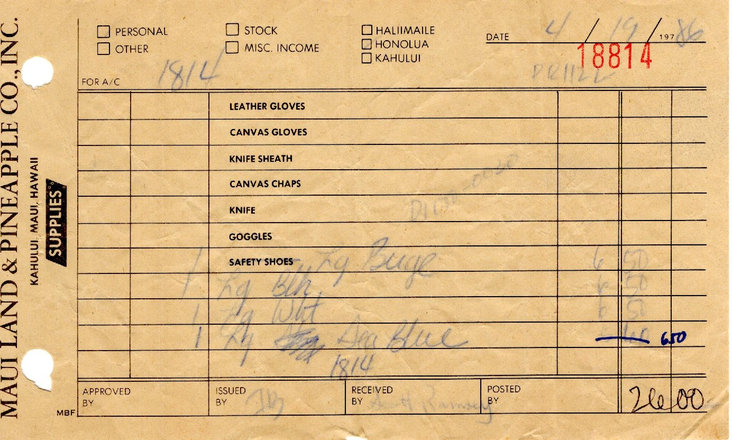 MAUI LAND & PINEAPPLE CO., INC.
KAHULUI, MAUI, HAWAII
SUPPLIES
PERSONAL
OTHER
STOCK
MISC. INCOME
HALIIMAILE
HONOLUA
KAHULUI
DATE 4/19/19786
18814
FOR A/C 1814
LEATHER GLOVES
CANVAS GLOVES
KNIFE SHEATH
CANVAS CHAPS
KNIFE
GOGGLES
SAFETY SHOES
1 Lg Beige 6 50
Lg Blk 6 50
1 Lg Wht 6 50
1 Lg Blue 6 50
1814
APPROVED BY
ISSUED BY
RECEIVED BY
POSTED BY
26 00
MBF